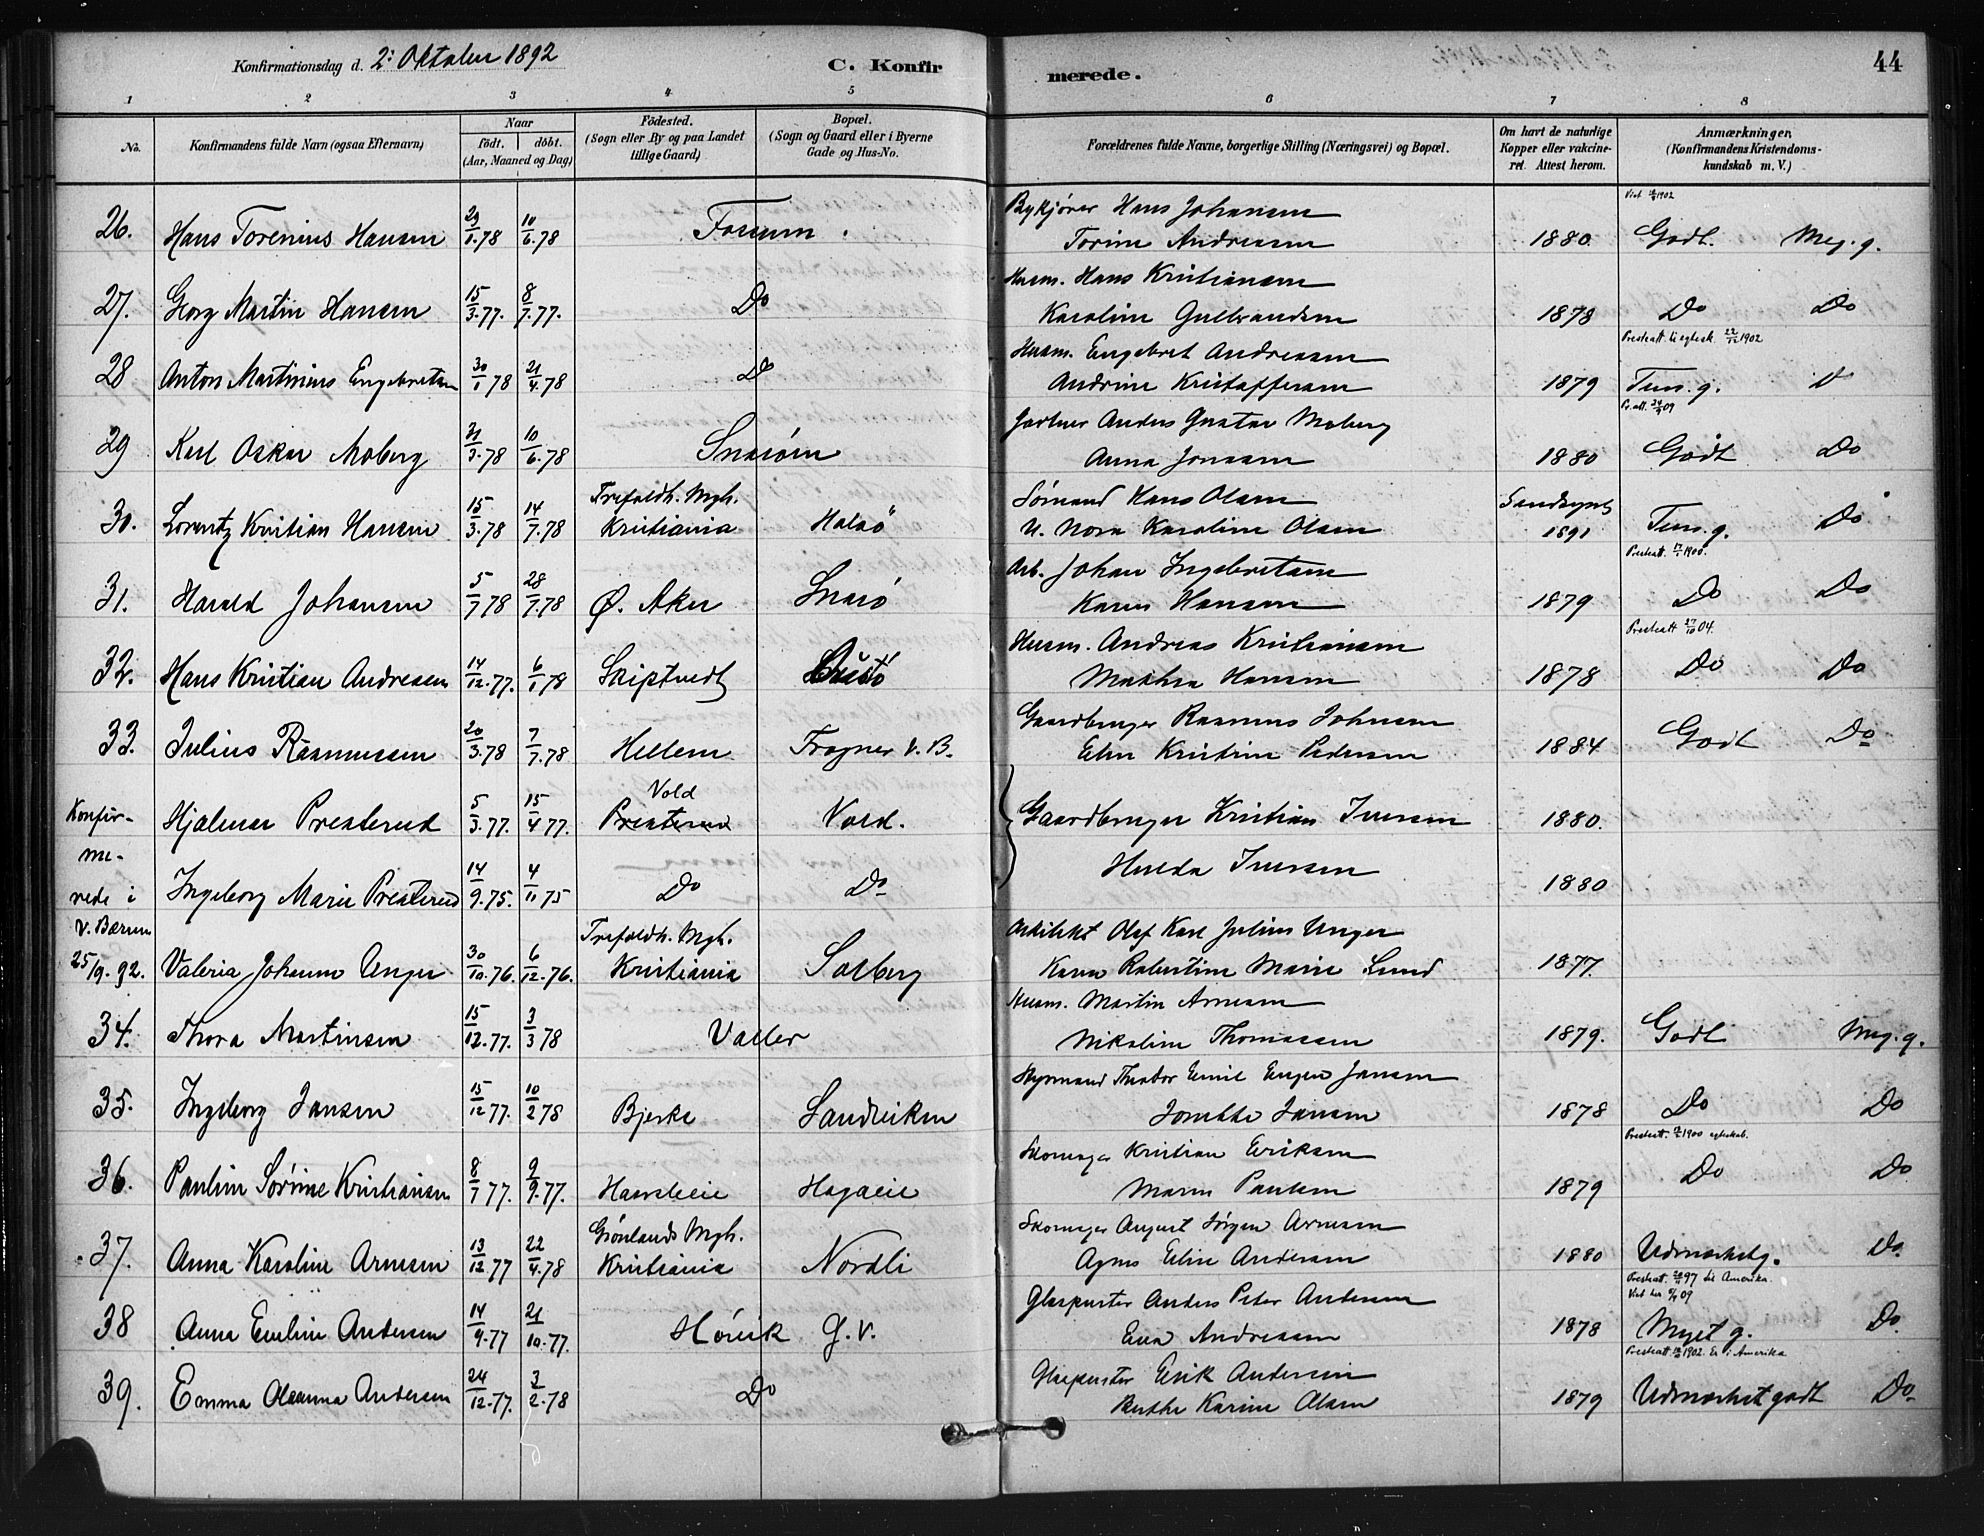 Konfirmationsdag d. 2: Oktober 1892 C. Konfir merede. 44
1 2 3 4 5 6 7 8
No. Konfirmandens fulde Navn (ogsaa Efternavn) Naar født. døbt. (Aar, Maaned og Dag) Fødested. (Sogn eller By og paa Landet tillige Gaard) Bopæl. (Sogn og Gaard eller i Byerne Gade og Hus-No. Forældrenes fulde Navne, borgerlige Stilling (Næringsvei) og Bopæl. Om havt de naturlige Kopper eller vakcineret. Attest herom. Anmærkninger. (Konfirmandens Kristendomskundskab m. V.)
Bykjører Hans Johansen
26. Hans Torenius Hansen 29/1.78 10/6.78 Fossum. Torine Andreasen 1880. Godt. Meg. g.
Husm. Hans Kristiansen
27. Georg Martin Hansen 15/3.77. 8/7.77. Do Karoline Gulbrandsen 1878 Do Do
Husm. Engebret Andreasen Presteatt. til egtesk. 22/12 1902
28 Anton Martinius Engebretsen 30/1 78 21/4.78 Do Andrine Kristoffersen 1879 Tem. g. D
Gartner Anders Gustav Moberg
29 Karl Oskar Moberg 31/3.78 10/6.78 Snarøen Anna Jonasen 1880 Godt Do
Trefoldh. Mgh. Sømand Hans Olsen Sandsynl
30. Lorentz Kristian Hansen 15/3.78 14/7.78 Kristiania Halsø U. Nora Karoline Olsen 1891 Tem. g. Do
Arb. Johan Ingebretsen Presteatt. 1900.
31. Harald Johansen 5/7 78 28/7.78 Ø. Aker Snarø Karen Hansen 1879 Do Do
Husm. Andreas Kristiansen Presteatt 27/10 04.
32. Hans Kristian Andreasen 14/12.77. 6/1 78 Skiptvedt Mathea Hansen 1878 Do Do
Gaardbruger Rasmus Johnsen
33. Julius Rasmussen 20/3.78 7/7.78 Hellem Frogner V. B. Elen Kristine Pedersen 1884 Godt Do
Vold
Konfir- Hjalmar Presterud 5/3.77. 15/4 77. Presterud Vold. Gaardbruger Kristian Iversen 1880.
me-
rede i Ingeborg Marie Presterud 14/9.75. 4/11 75 Do Do Hulda Iversen 1880
V. Bærum Trefoldh. Mgh. Arkitekt Olaf Karl Julius Unger
25/9.92. Valeria Johanne Unger 30/10.76. 6/12.76. Kristiania Solberg Karen Robertine Marie Lund 1877.
Husm. Martin Arnesen
34. Thora Martinsen 15/12.77. 3/3 78 Valler Nikoline Thomassen 1879. Godt Meg. g.
Styrmand Theodor Emil Eugen Jansen
35. Ingeborg Jansen 15/12 77. 10/2 78 Bjerke Sandviken Jansen 1878 Do Do
Skomager Kristian Eriksen Presteatt. 1900 egteskab.
36. Pauline Sørine Kristiansen 8/7 77. 9/9.77. Hagaeie Maren Paulsen 1879 Do Do
Grønlands Mgh. Skomager August Jørgen Arnesen
37. Anna Karoline Arnesen 13/12 77 22/4.78 Kristiania Nordli Agnes Eline Andersen 1880 Udmærketg. Do
Glaspuster Anders Peter Andersen Presteatt. 97 til Amerika. Vist her 09
38 Anna Emeline Andersen 14/9.77 21/10.77. Høvik G. V. Eva Andreasen 1878 Myet g. Do
Glaspuster Erik Andersen Presteatt. 1902. Er i Amerika
39. Emma Oleanna Andersen 24/12.77. 3/2.78 Do Berthe Karine Olsen 1879 Udmærket godt Do